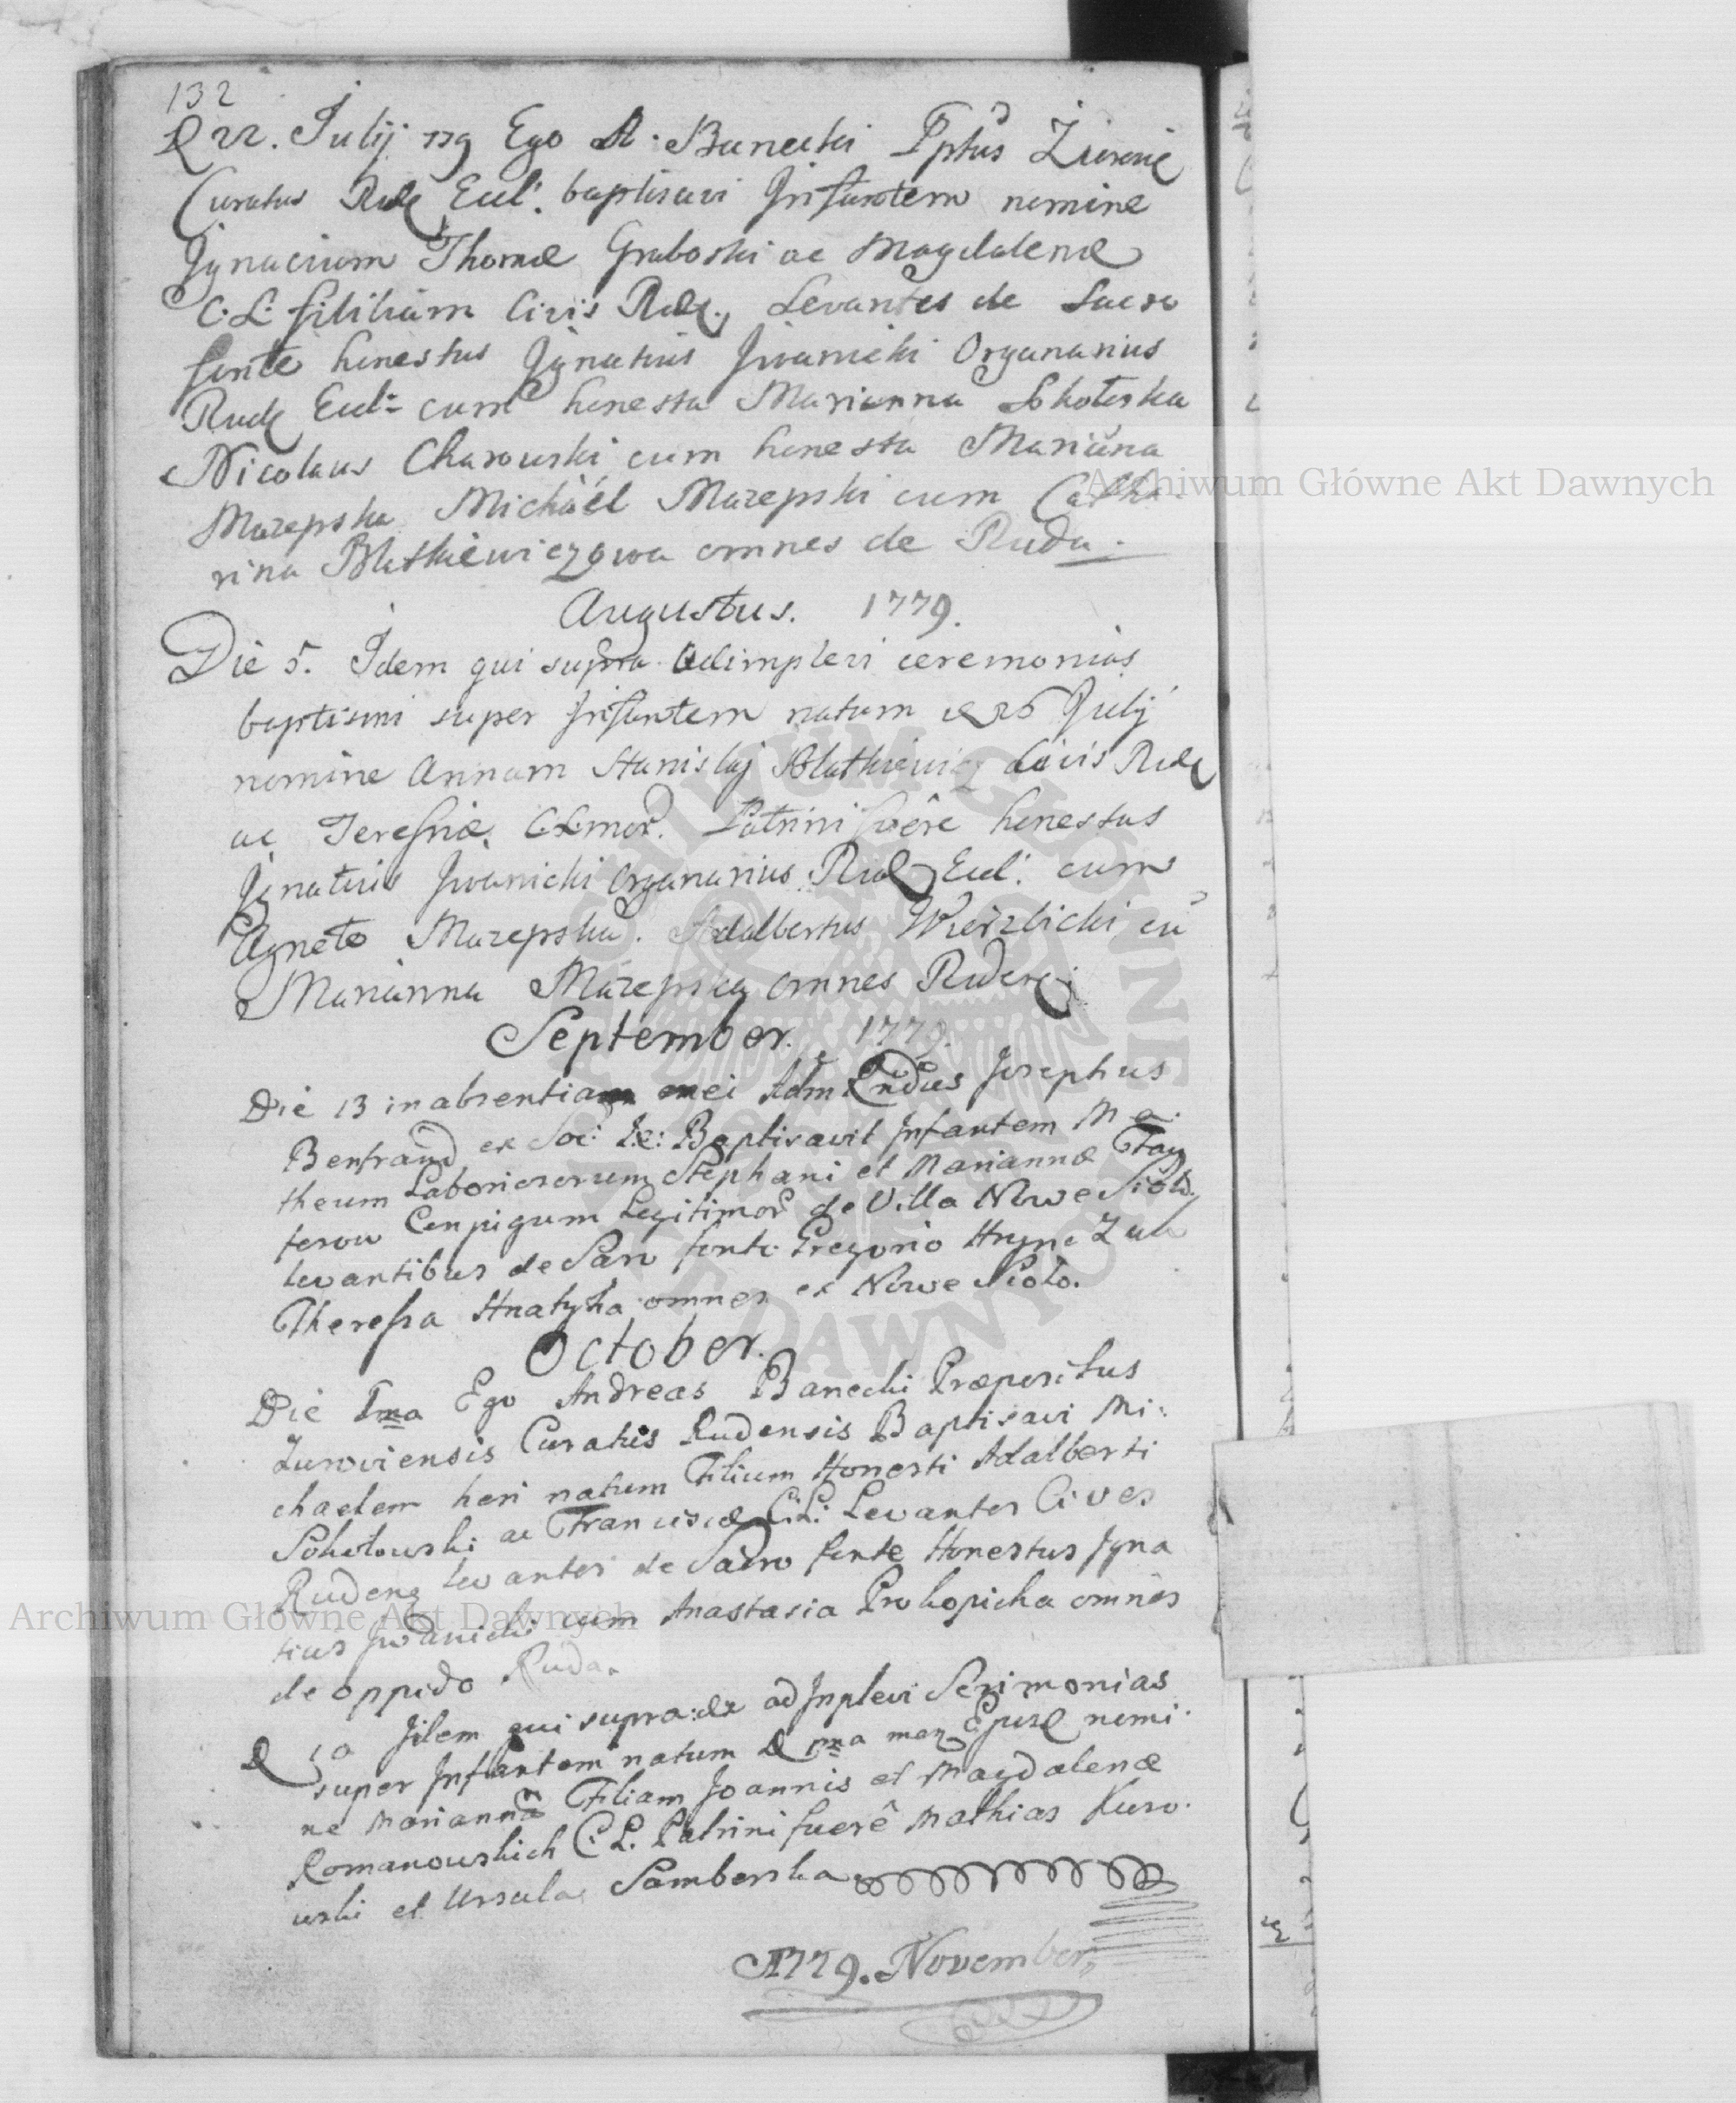 132
D 22. Julij 779 Ego A. Banecki Pptus Zurovie
Curatus Rudę Eccl. baptisavi Infantem nomine
Ignacium Thomæ Graboski ac Magdalenæ
C. L. filium Civis Rudę, Levantes de Sacro
fonte honestus Ignatius Jwanicki Organarius
Rudę Eccl: cum honesta Marianna Sokoleska
Nicolaus Charowski cum honesta Marianna
Mazepska Michäel Mazepski cum Catha
rina Blatkiewiczowa omnes de Ruda.
Augustus. 1779.
Die 5. Idem qui supra Adimplevi ceremonias
baptismi super Infantem natum 26 Julij
nomine Annam Stanislaj Blatkiewicz Civis Rudę
ac Teresiæ C. L. mor. Patrini fuêre honestus
Ignatius Jwanicki Organarius Rudę Eccl. cum
Agneta Mazepska. Adalbertus Wierzbicki cu
Marianna Mazepska omnes Ruden.
September. 1779.
Die 13 in absentia mei Adm Rndus Josephus
Bertrand ex Soc: Je: Baptisavit Infantem Ma
theum Laboriosorum Stephani et Mariannæ
Conjugum Legitimor de Villa Nowe Sioło
levantibus de Sacro fonte Gregorio Hryne
Theressa Hnatyka omnes ex Nowe Sioło.
October.
Die Ima Ego Andreas Banecki Præpositus
Zuroviensis Curatus Rudensis Baptisavi Mi:
chaelem heri natum Filium Honesti Adalberti
Sokołowski ac Franciscæ C: L: Levantes Cives
Rudens levantes de Sacro fonte Honestus Igna
tius Jwanicki cum Anastasia Prokopicha omnes
de oppido Ruda.
D 10 Idem qui supra adJnplevi Serimonias
super Infantem natum D Ima nomi
ne Marianna Filiam Joannis et Magdalenæ
Romanowskich C: L: Patrini fuerê Mathias Kuro
wski et Ursula Samberska
1779. November.
Archiwum Główne Akt Dawnych
Archiwum Główne Akt Dawnych
ARCHIWUM GŁÓWNE AKT DAWNYCH